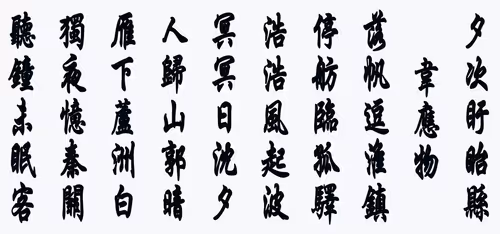 夕次盱眙縣
韋應物
落帆逗淮鎮
停舫臨孤驛
浩浩風起波
冥冥日沈夕
人歸山郭暗
雁下蘆洲白
獨夜憶秦關
聽鐘未眠客